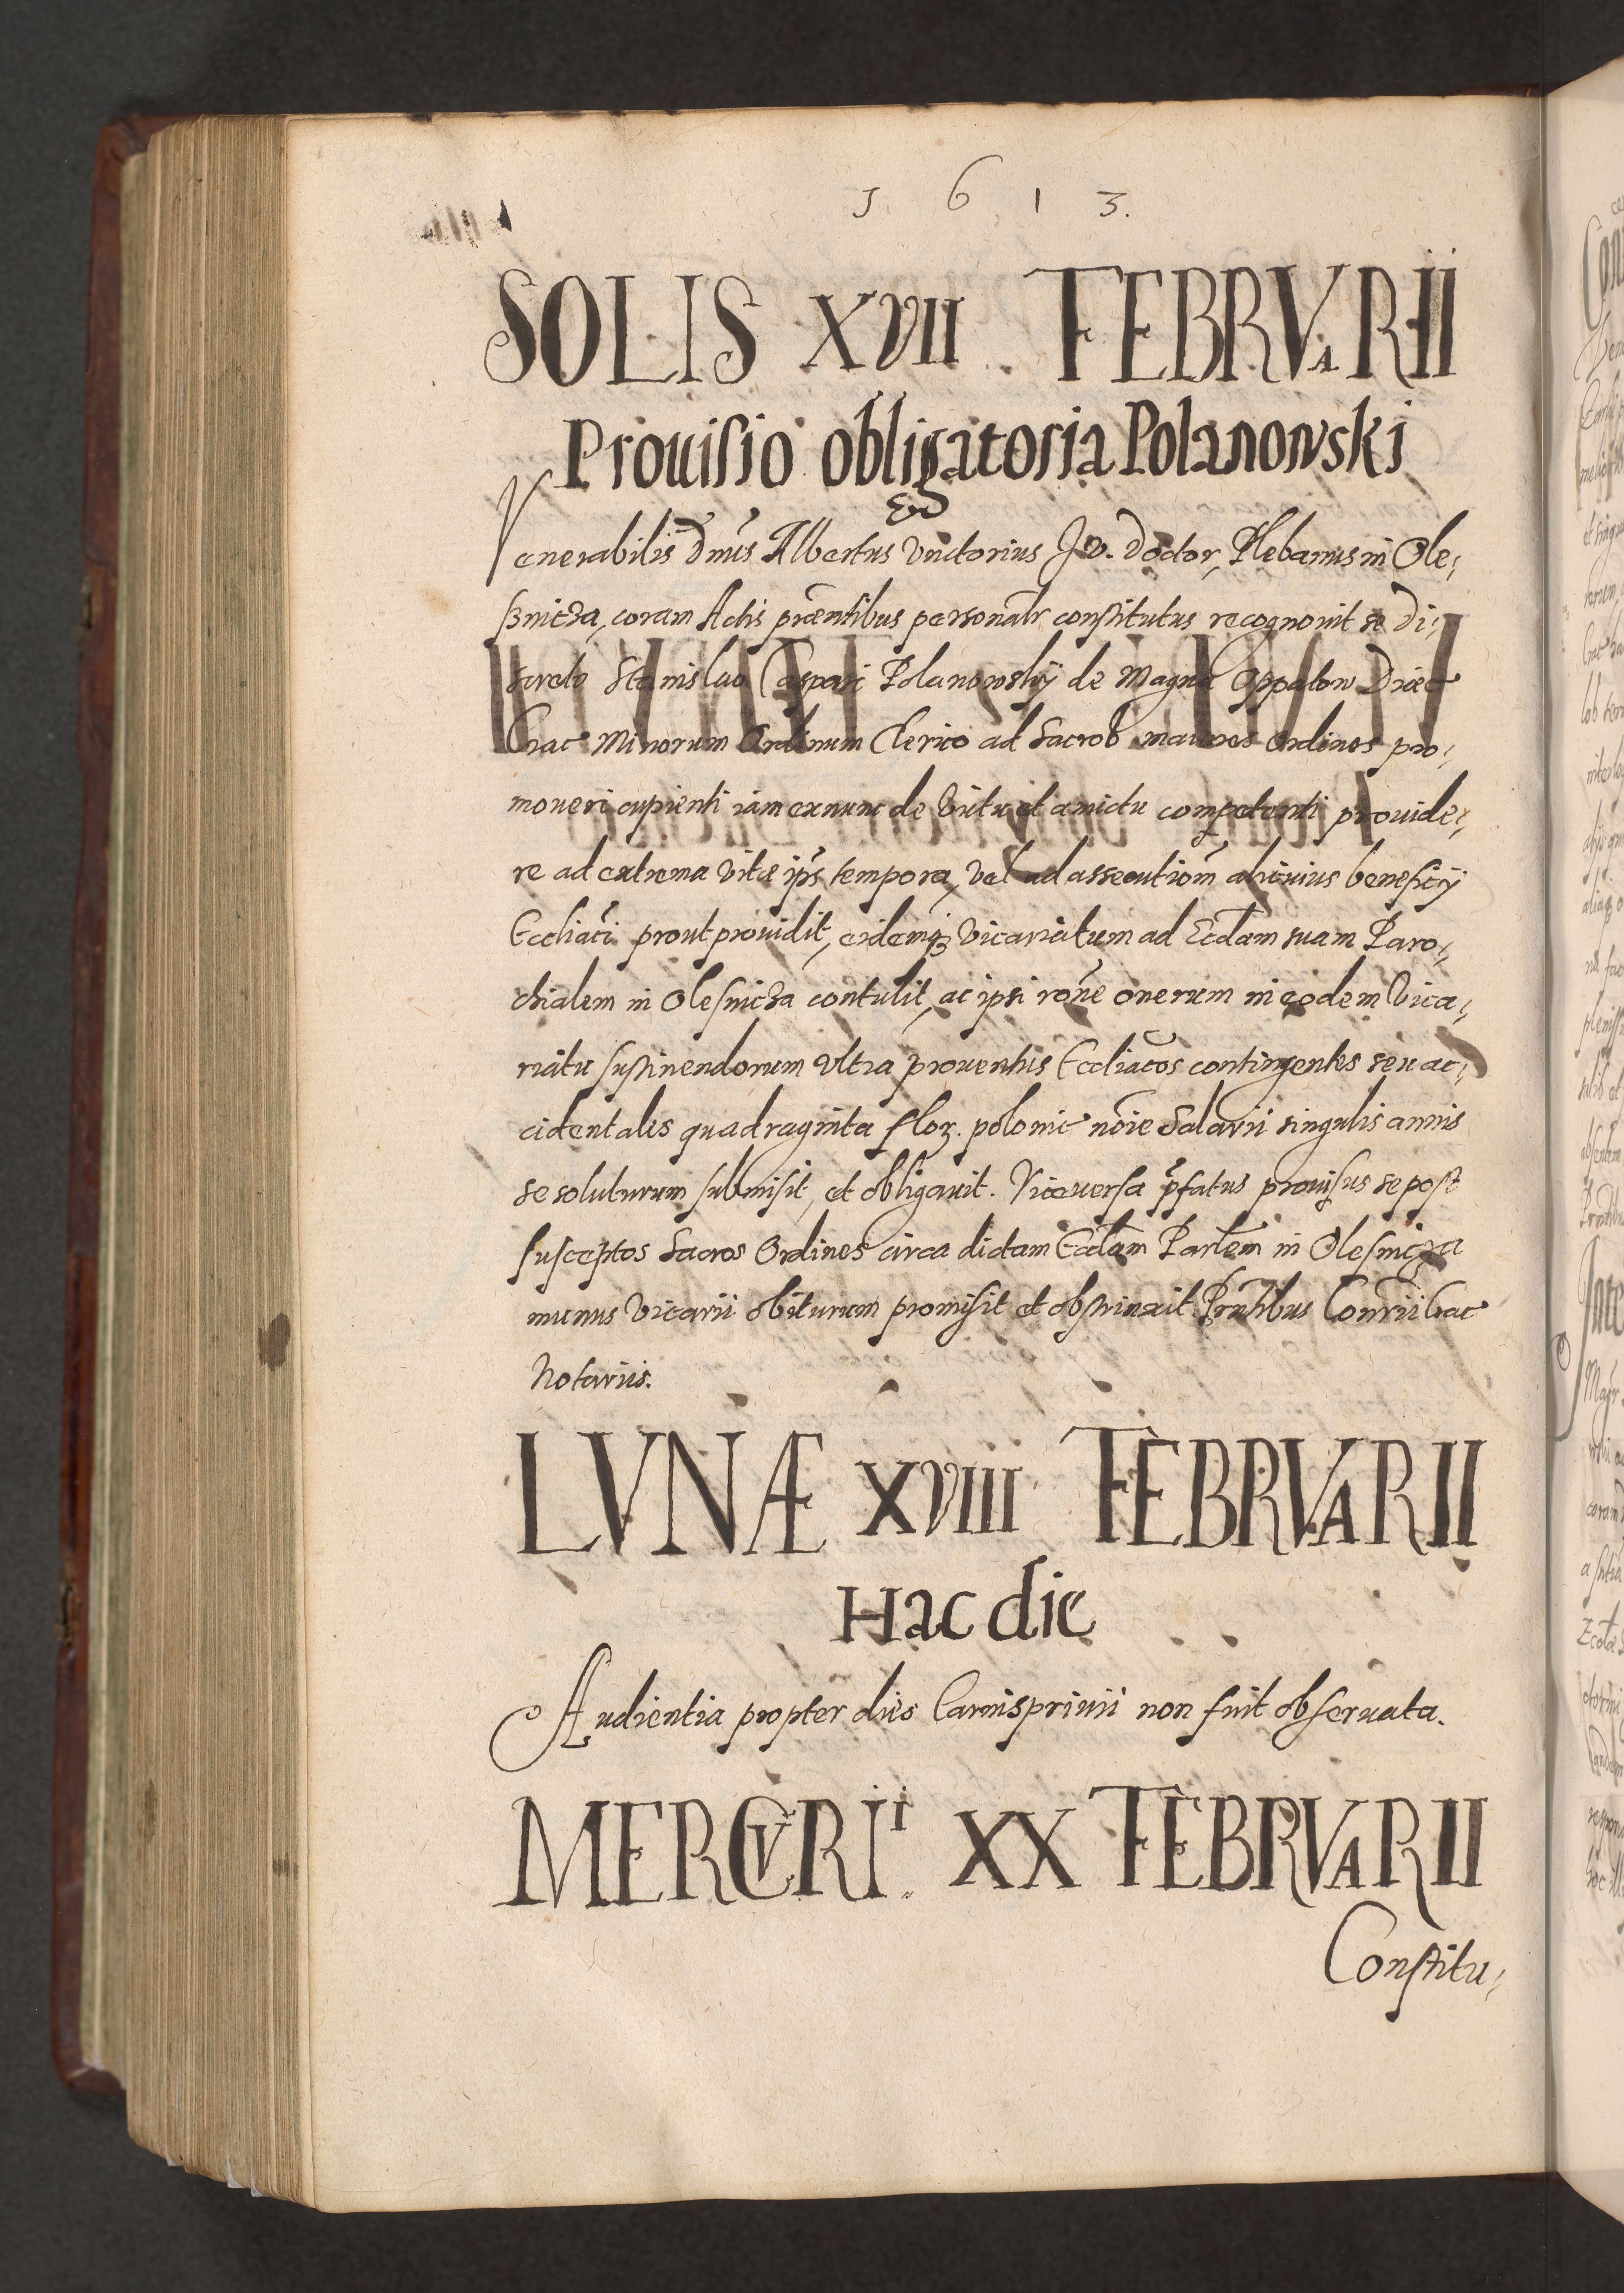 1613.
SOLIS XVII FEBRVARII
Prouisio obligatoria Polanowski
Venerabilis Dnus Albertus Vnctorius J. V. Doctor, Plebanus in Ole,
snicza, coram Actis præntibus personalr constitutus recognouit se Di,
screto Stanislao Caspari Polanowskÿ de Magna Oppatow Diæc
Crac Minorum Ordinum Clerico ad Sacros maiores Ordines pro,
moueri cupienti iam exnunc de victu et amictu competenti prouide,
re ad extrema vitæ ips tempora, vel ad assecutiom alicuius beneficÿ
Eccliaci prout prouidit, eidemq vicariatum ad Ecclam suam Paro,
chialem in Olesnicza contulit, ac ipsi rone onerum in eodem Vica,
riatu sustinendorum vltra prouentus Eccliacos contingentes seu ac,
cidentales quadraginta flor. polonic noie Salarii singulis annis
se soluturum submisit, et obligauit. Viceuersa pfatus prouisus se post
susceptos Sacros Ordines circa dictam Ecclam Parlem in Olesnicza
munus Vicarii obiturum promisit et obstrinxit Pruntibus Conrii Crac
Notariis.
LVNÆ XVIII FEBRVARII
Hac die
Audientia propter dies Carnispriuii non fuit obseruata.
MERCVRII XX FEBRVARII
Constitu,